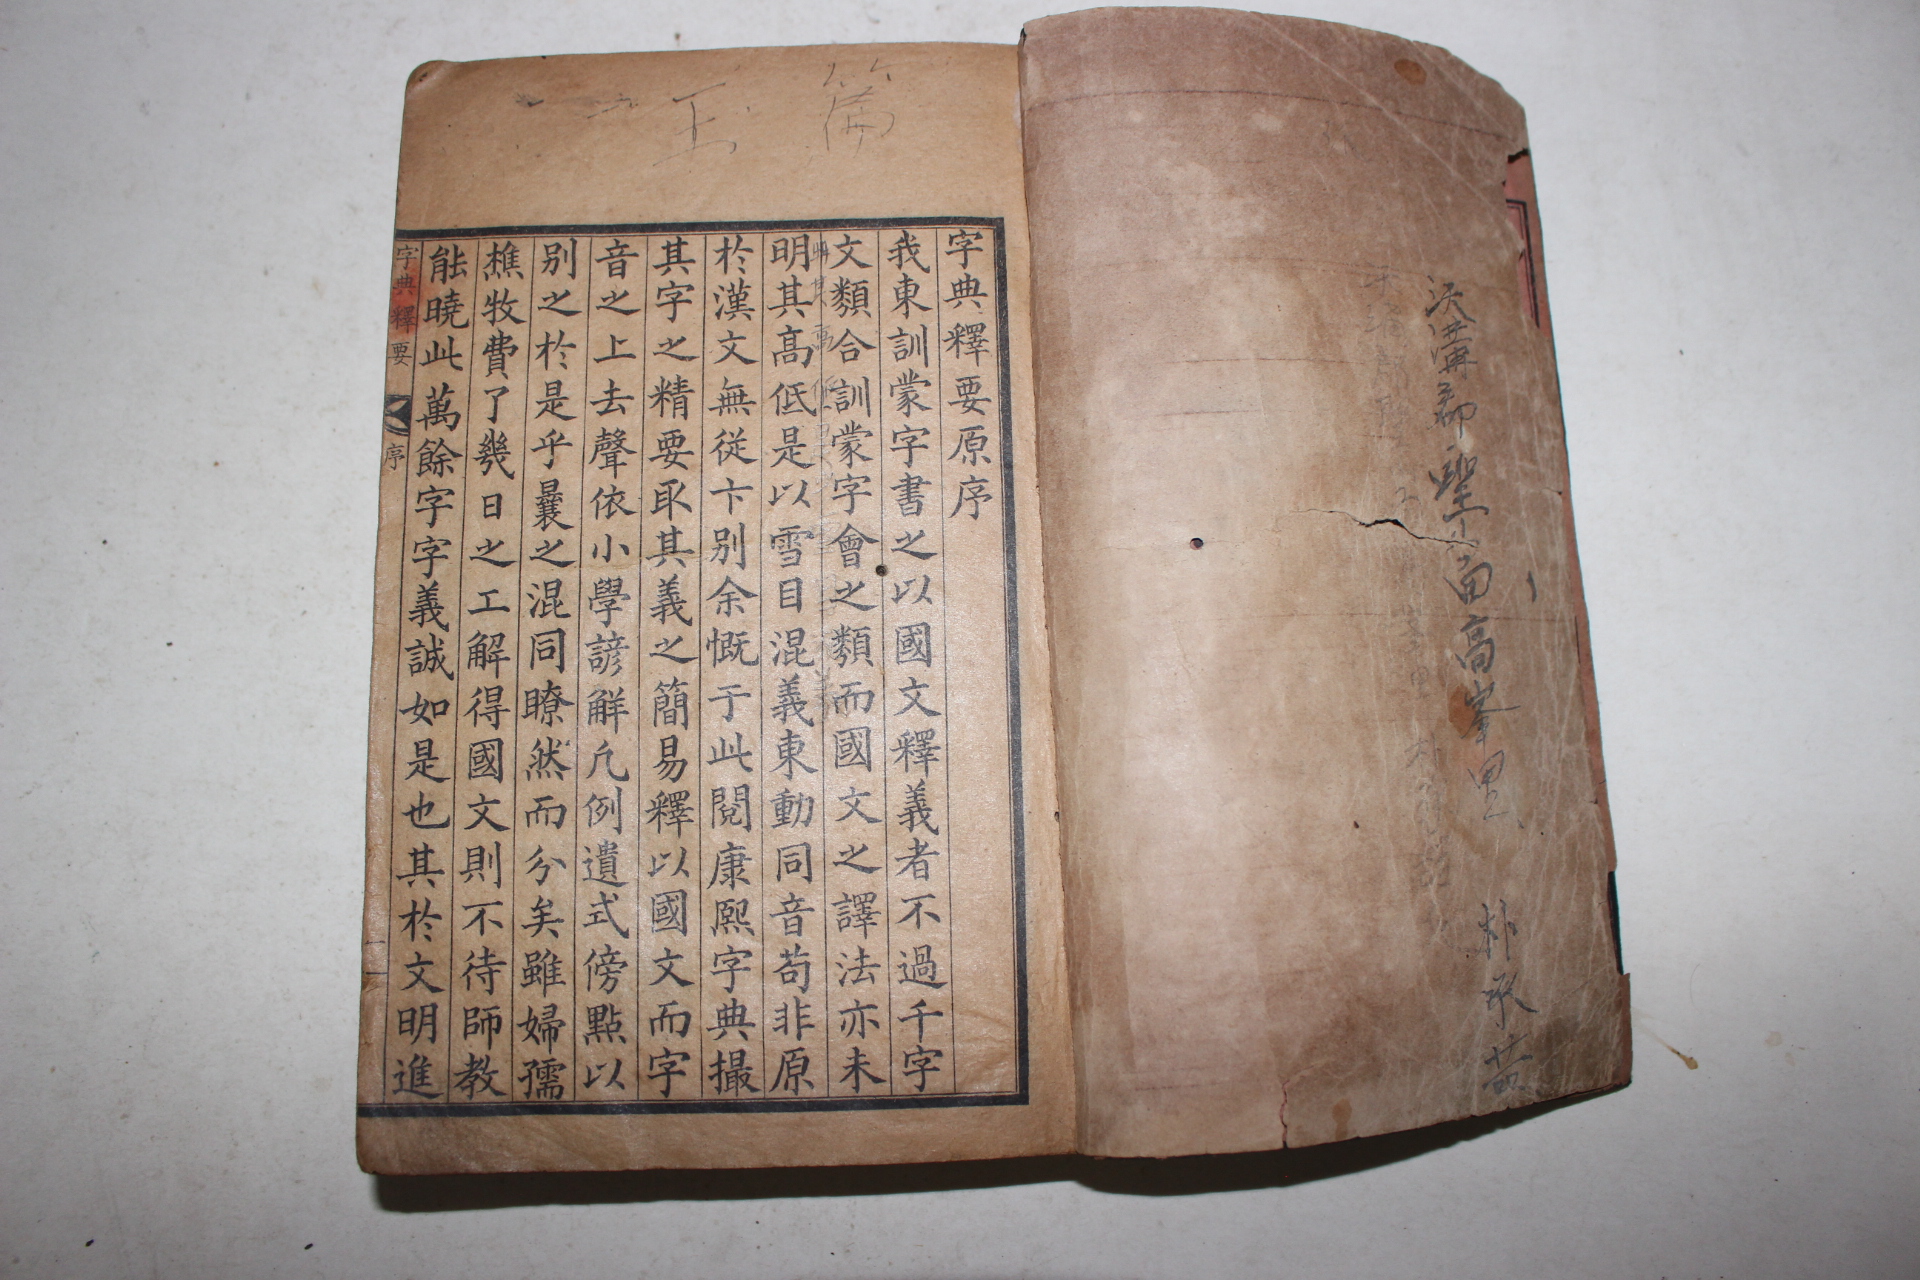 字典釋要原序
我東訓蒙字書之以國文釋義者不過千字
文類合訓蒙字會之類而國文之譯法亦未
明其髙低是以雪目混義東動同音苟非原
於漢文無從卞別余慨于此閱康熙字典撮
其字之精要取其義之簡易釋以國文而字
音之上去聲依小學諺解凡例遺式傍點以
別之於是乎曩之混同瞭然而分矣雖婦孺
樵牧費了幾日之工解得國文則不待師教
能曉此萬餘字字義誠如是也其於文明進
字典釋要
序
一
玉篇
洪溝郡聖山面高峯里
朴承